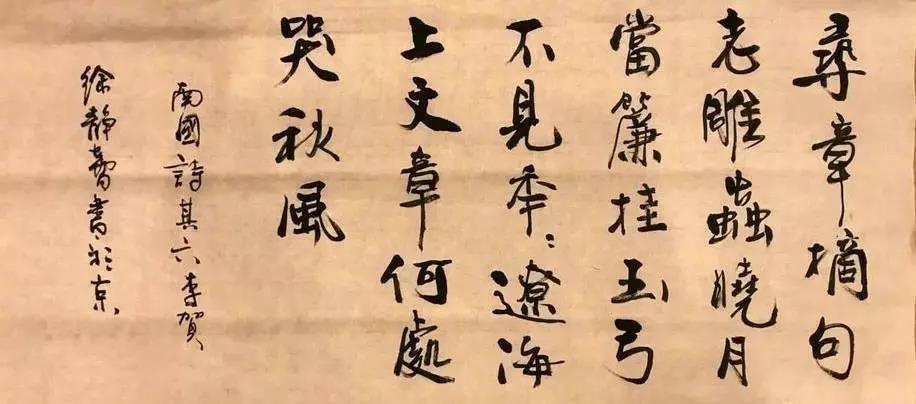 尋章摘句
老雕蟲曉月
當簾挂玉弓
不見年〻遼海
上文章何處
哭秋風
南國詩其六李賀
徐静書於京